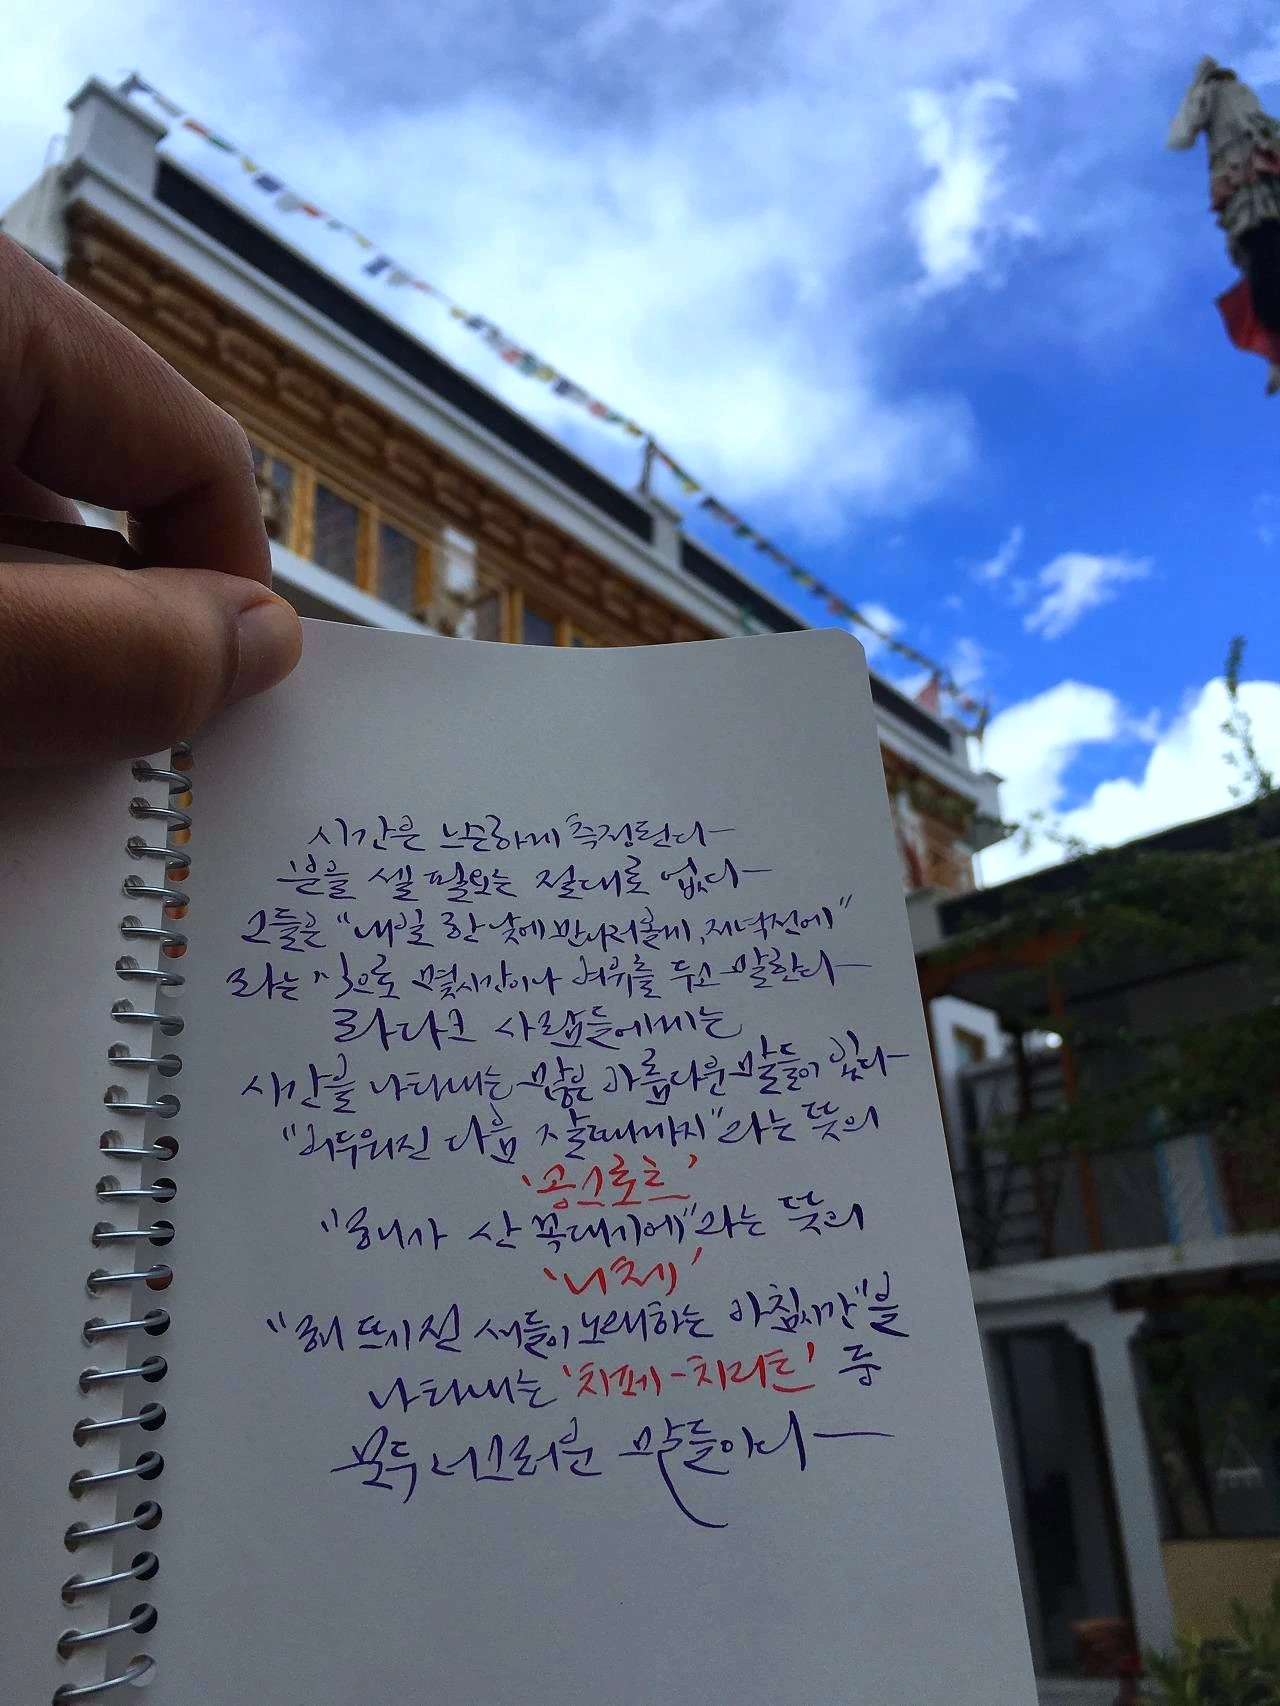 시간은 느슨하게 측정된다
분을 셀 필요는 절대로 없다
그들은 "내일 한낮에 만나러올게, 저녁전에"
라는 식으로 몇시간이나 여유를 두고 말한다
라다크 사람들에게는
시간을 나타내는 많은 아름다운 말들이 있다
"어두워진 다음 잘때까지"라는 뜻의
'공스로트'
"해가 산 꼭대기에"라는 뜻의
'니체'
"해 뜨기 전 새들이 노래하는 아침시간"을
나타내는 '치페-치리트' 등
모두 너그러운 말들이다